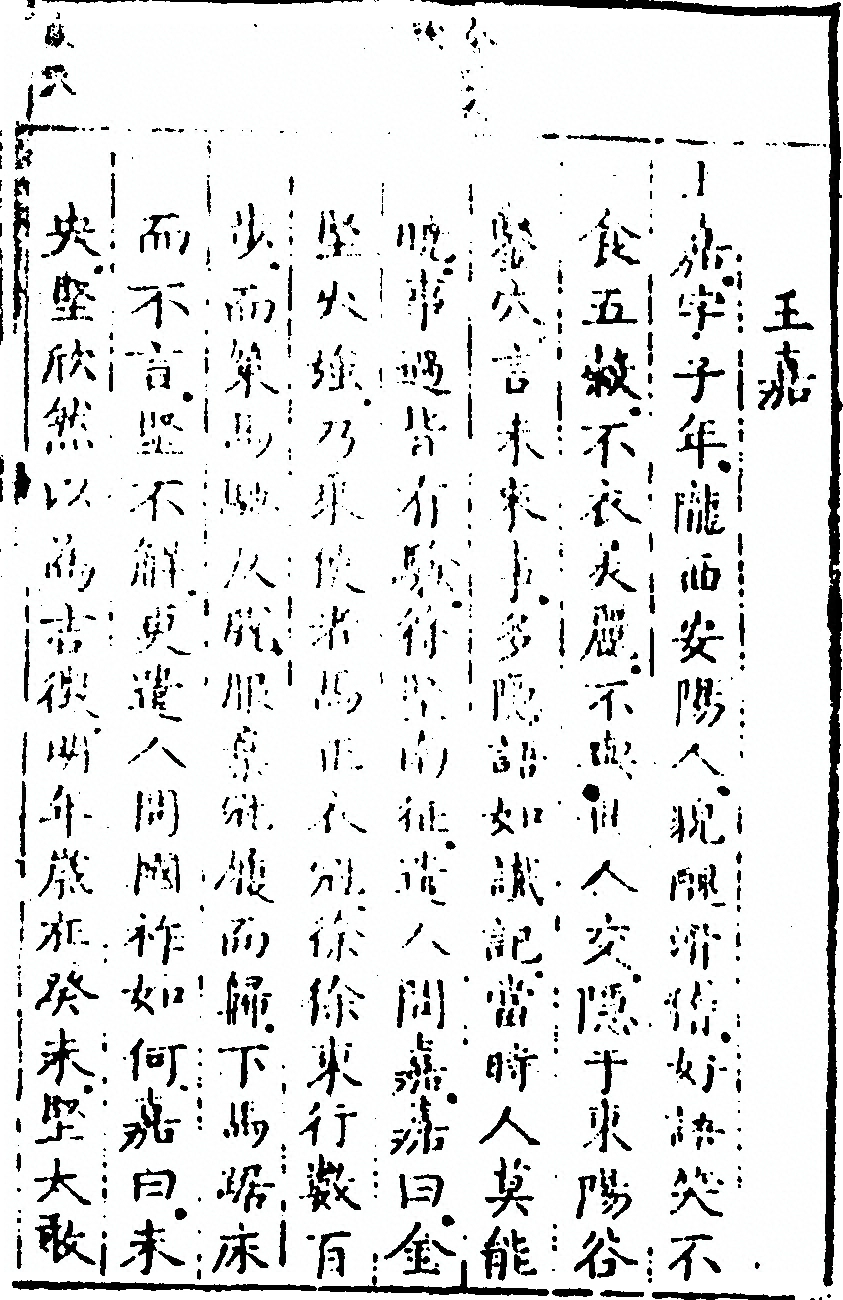 王嘉
王嘉字子年隴西安陽人貌醜滑稽好語笑不
食五穀不衣美麗不與世人交隱于東陽谷
鑿穴言未來事多隱語如讖記當時人莫能
曉事過皆有驗苻堅南征遣人問嘉嘉曰金
堅火強乃乘使者馬正衣冠徐徐東行數百
步而策馬馳反脫服棄冠履而歸下馬踞床
而不言堅不解更遣人問國祚如何嘉曰未
央堅欣然以為吉徵明年歲在癸未堅大敗